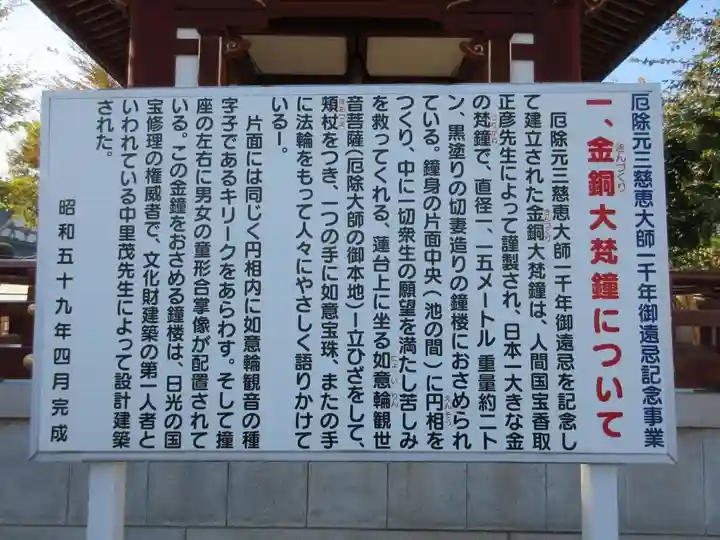 厄除元三慈恵大師一千年御遠忌記念事業
一、金銅大梵鐘について
きんづくり
厄除元三慈恵大師一千年御遠忌を記念し
て建立された金銅大梵鐘は、人間国宝香取
きんづくり
正彦先生によって謹製され、日本一大きな金
の梵鐘で、直径一、一五メートル 重量約二ト
つりがね
ン、黒塗りの切妻造りの鐘楼におさめられ
ている。鐘身の片面中央(池の間)に円相を
えんそう
つくり、中に一切衆生の願望を満たし苦しみ
を救ってくれる、蓮台上に坐る如意輪観世
にょいりん
音菩薩(厄除大師の御本地)ー立ひざをして、
頬杖をつき、一つの手に如意宝珠、またの手
ほおづえ
に法輪をもって人々にやさしく語りかけて
いるー。
片面には同じく円相内に如意輪観音の種
字子であるキリークをあらわす。そして撞
座の左右に男女の童形合掌像が配置されて
いる。この金鐘をおさめる鐘楼は、日光の国
宝修理の権威者で、文化財建築の第一人者と
いわれている中里茂先生によって設計建築
された。
昭和五十九年四月完成